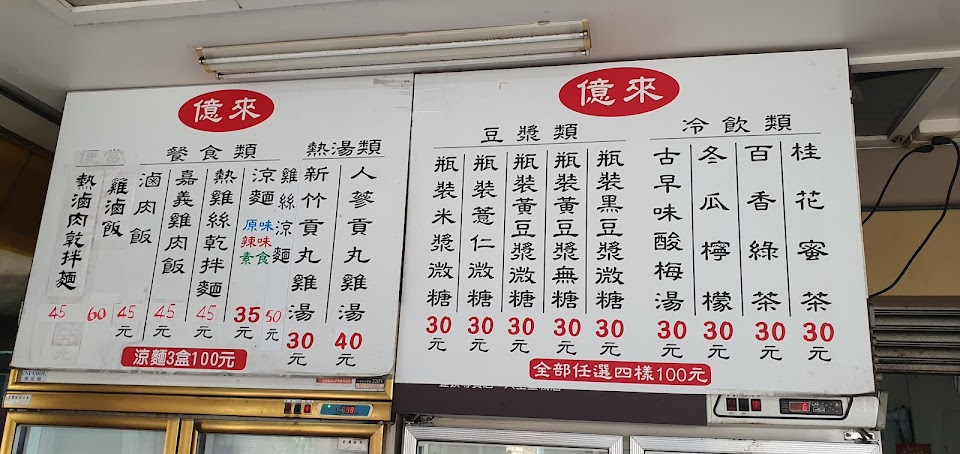 億來
便當
餐食類
熱湯類
熱滷肉乾拌麵
45
雞滷飯
60
滷肉飯
45元
嘉義雞肉飯
45元
熱雞絲乾拌麵
45元
涼麵
原味
辣味
素食
35元
雞絲涼麵
50元
新竹貢丸雞湯
30元
人蔘貢丸雞湯
40元
涼麵3盒100元
億來
豆漿類
冷飲類
瓶裝米漿微糖
30元
瓶裝薏仁微糖
30元
瓶裝黃豆漿微糖
30元
瓶裝黃豆漿無糖
30元
瓶裝黑豆漿微糖
30元
古早味酸梅湯
30元
冬瓜檸檬
30元
百香綠茶
30元
桂花蜜茶
30元
全部任選四樣100元